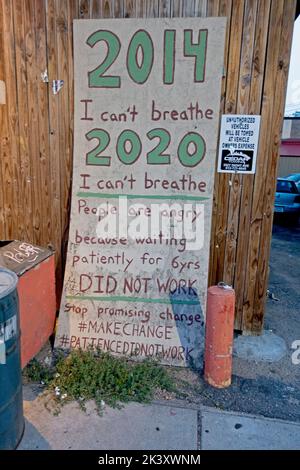 2014
I can't breathe
2020
I can't breathe
People are angry
because waiting
patiently for 6yrs
#DID NOT WORK
Stop promising change,
#MAKECHANGE
#PATIENCEDIDNOTWORK
UNAUTHORIZED
VEHICLES
WILL BE TOWED
AT VEHICLE
OWNERS EXPENSE
alamy
Image ID: 2K3XWNM
www.alamy.com